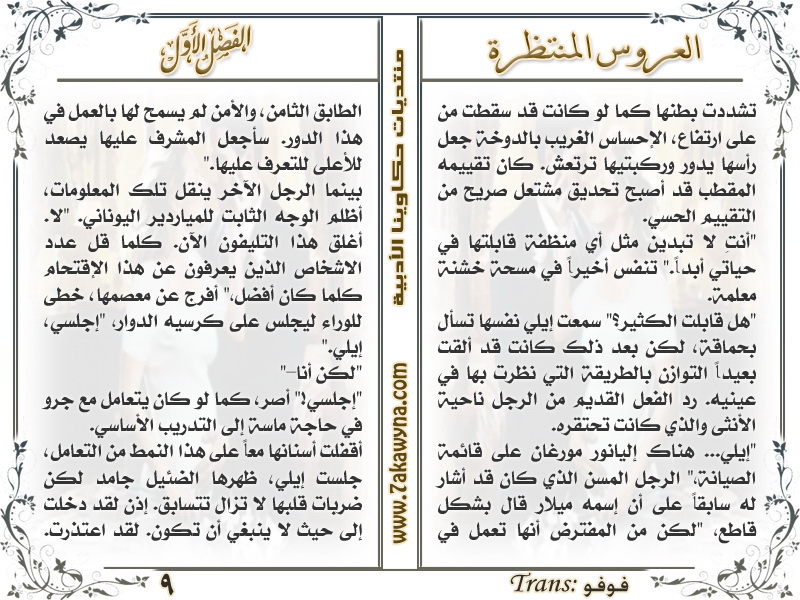 العروس المنتظرة
تشددت بطنها كما لو كانت قد سقطت من
على ارتفاع، الإحساس الغريب بالدوخة جعل
رأسها يدور وركبتيها ترتعش. كان تقييمه
المقطب قد أصبح تحديق مشتعل صريح من
التقييم الحسي.
"أنتِ لا تبدين مثل أي منظفة قابلتها في
حياتي أبداً." تنفس أخيراً في مسحة خشنة
معلمة.
"هل قابلت الكثير؟" سمعت إيلي نفسها تسأل
بحماقة، لكن بعد ذلك كانت قد ألقت
بعيداً التوازن بالطريقة التي نظرت بها في
عينيه. رد الفعل القديم من الرجل ناحية
الأنثى والذي كانت تحتقره.
"إيلي... هناك إليانور مورغان على قائمة
الصيانة،" الرجل المسن الذي كان قد أشار
له سابقاً على أن إسمه ميلار قال بشكل
قاطع، "لكن من المفترض أنها تعمل في
فوفو :Trans
منتديات حكاوينا الأدبية
www.7akawyna.com
الفصل الأول
الطابق الثامن، والأمن لم يسمح لها بالعمل في
هذا الدور. سأجعل المشرف عليها يصعد
للأعلى للتعرف عليها."
بينما الرجل الآخر ينقل تلك المعلومات،
أظلم الوجه الثابت للملياردير اليوناني. "لا.
أغلق هذا التليفون الآن. كلما قل عدد
الاشخاص الذين يعرفون عن هذا الإقتحام
كلما كان أفضل،" أفرج عن معصمها، خطى
للوراء ليجلس على كرسيه الدوار، "إجلسي،
إيلي."
"لكن أنا-"
"إجلسي!" أصر، كما لو كان يتعامل مع جرو
في حاجة ماسة إلى التدريب الأساسي.
أقفلت أسنانها معاً على هذا النمط من التعامل،
جلست إيلي، ظهرها الضئيل جامد لكن
ضربات قلبها لا تزال تتسابق. إذن لقد دخلت
إلى حيث لا ينبغي أن تكون. لقد اعتذرت.
٩